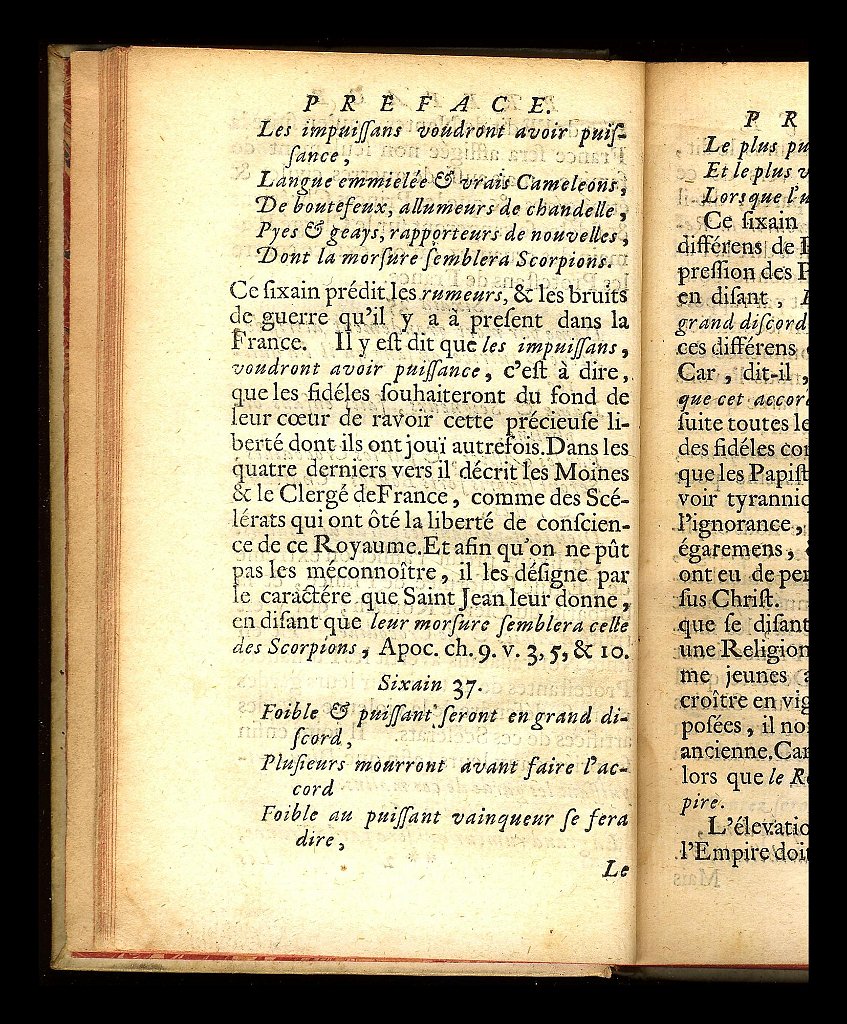 P R E F A C E.
Les impuiſſans voudront avoir puiſ-
ſance,
Langue emmielée & vrais Cameleons,
De boutefeux, allumeurs de chandelle,
Pyes & geays, rapporteurs de nouvelles,
Dont la morſure ſemblera Scorpions.
Ce ſixain prédit les rumeurs, & les bruits
de guerre qu'il y a à preſent dans la
France. Il y eſt dit que les impuiſſans,
voudront avoir puiſſance, c'eſt à dire,
que les fidéles ſouhaiteront du fond de
leur cœur de ravoir cette précieuſe li-
berté dont ils ont jouï autrefois. Dans les
quatre derniers vers il décrit les Moines
& le Clergé de France, comme des Scé-
lérats qui ont ôté la liberté de conſcien-
ce de ce Royaume. Et afin qu'on ne pût
pas les méconnoître, il les déſigne par
le caractére que Saint Jean leur donne,
en diſant que leur morſure ſemblera celle
des Scorpions, Apoc. ch. 9. v. 3, 5, & 10.
Sixain 37.
Foible & puiſſant ſeront en grand di-
ſcord,
Pluſieurs mourront avant faire l'ac-
cord
Foible au puiſſant vainqueur ſe fera
dire,
Le
P R
Le plus pu
Et le plus v
Lorsque l'u
Ce ſixain
différens de
preſſion des P
en diſant,
grand diſcord
ces différens
Car, dit-il,
que cet accor
ſuite toutes le
des fidéles co
que les Papiſt
voir tyrannic
l'ignorance,
égaremens,
ont eu de per
ſus Chriſt.
que ſe diſant
une Religion
me jeunes a
croître en vig
poſées, il no
ancienne. Car
lors que le R
pire.
L'élevatio
l'Empire doi